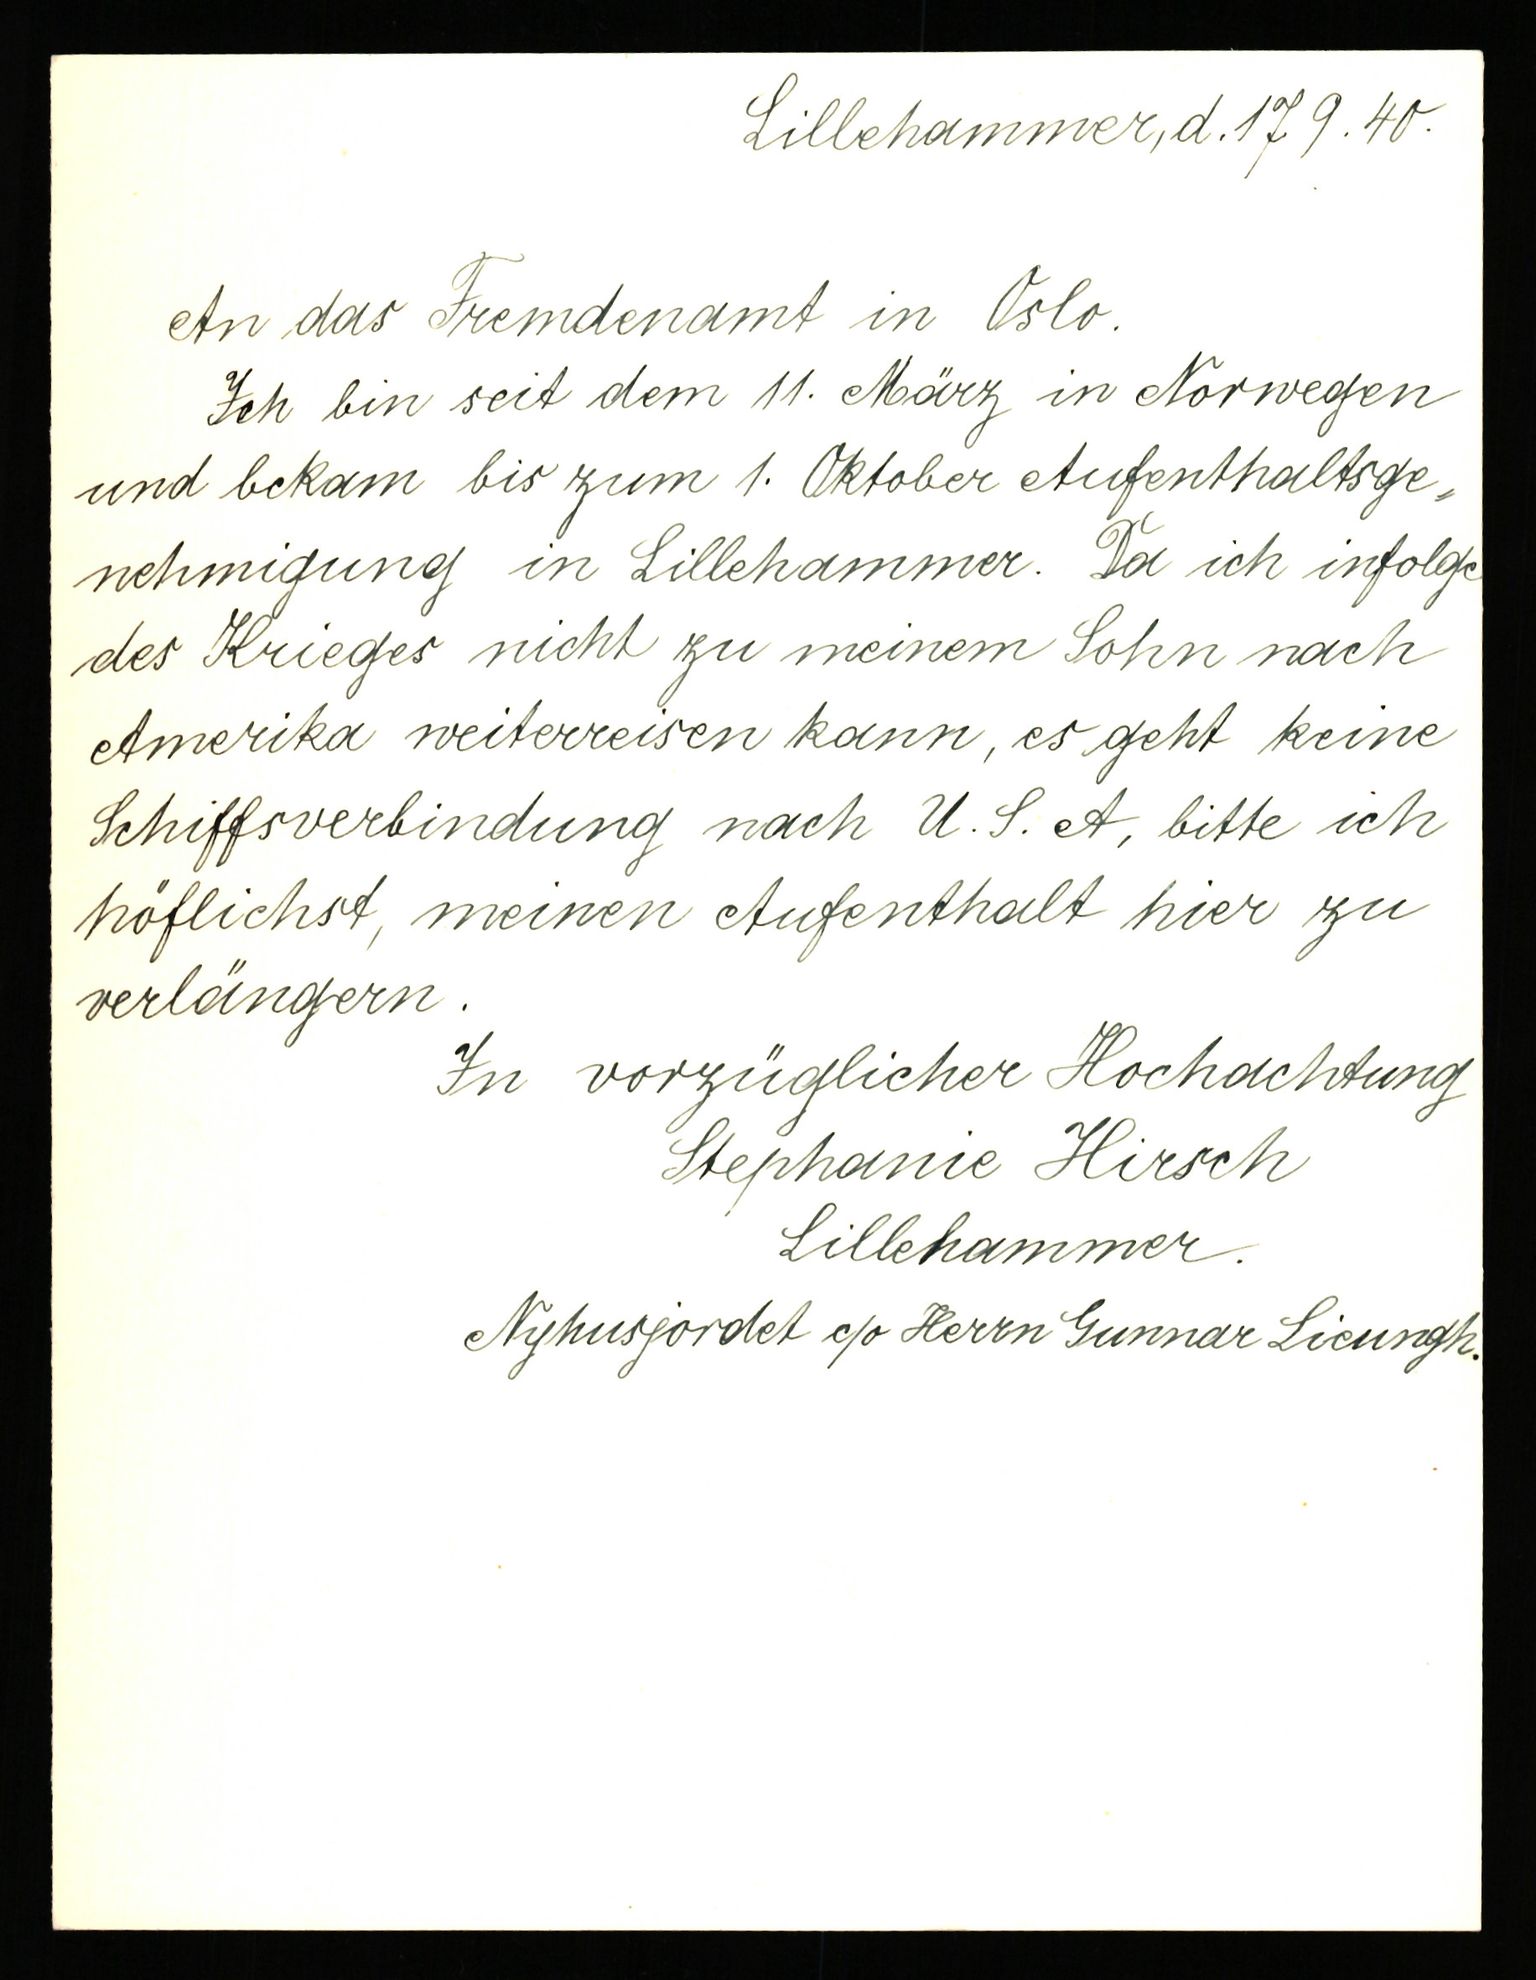 Lillehammer, d. 17 9. 40.
An das Fremdenamt in Oslo.
Ich bin seit dem 11. März in Norwegen
und bekam bis zum 1. Oktober Aufenthaltsge„
nehmigung in Lillehammer. Da ich infolge
des Krieges nicht zu meinem Sohn nach
Amerika weiterreisen kann, es geht keine
Schiffsverbindung nach U. S. A, bitte ich
höflichst, meinen Aufenthalt hier zu
verlängern.
In vorzüglicher Hochachtung
Stephanie Hirsch
Lillehammer.
Nyhusjordet c/o Herrn Gunnar Lieungh.